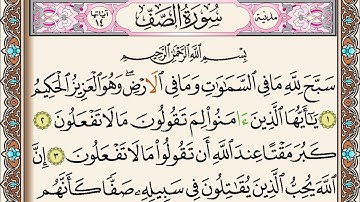 مدنية سُورَةُ الصَّفِّ آياتها ١٤
بِسْمِ اللَّهِ الرَّحْمَٰنِ الرَّحِيمِ
سَبَّحَ لِلَّهِ مَا فِي السَّمَٰوَٰتِ وَمَا فِي الْأَرْضِ ۖ وَهُوَ الْعَزِيزُ الْحَكِيمُ
١ يَٰٓأَيُّهَا الَّذِينَ ءَامَنُوا۟ لِمَ تَقُولُونَ مَا لَا تَفْعَلُونَ ٢
كَبُرَ مَقْتًا عِندَ اللَّهِ أَن تَقُولُوا۟ مَا لَا تَفْعَلُونَ ٣ إِنَّ
اللَّهَ يُحِبُّ الَّذِينَ يُقَٰتِلُونَ فِي سَبِيلِهِۦ صَفًّا كَأَنَّهُم